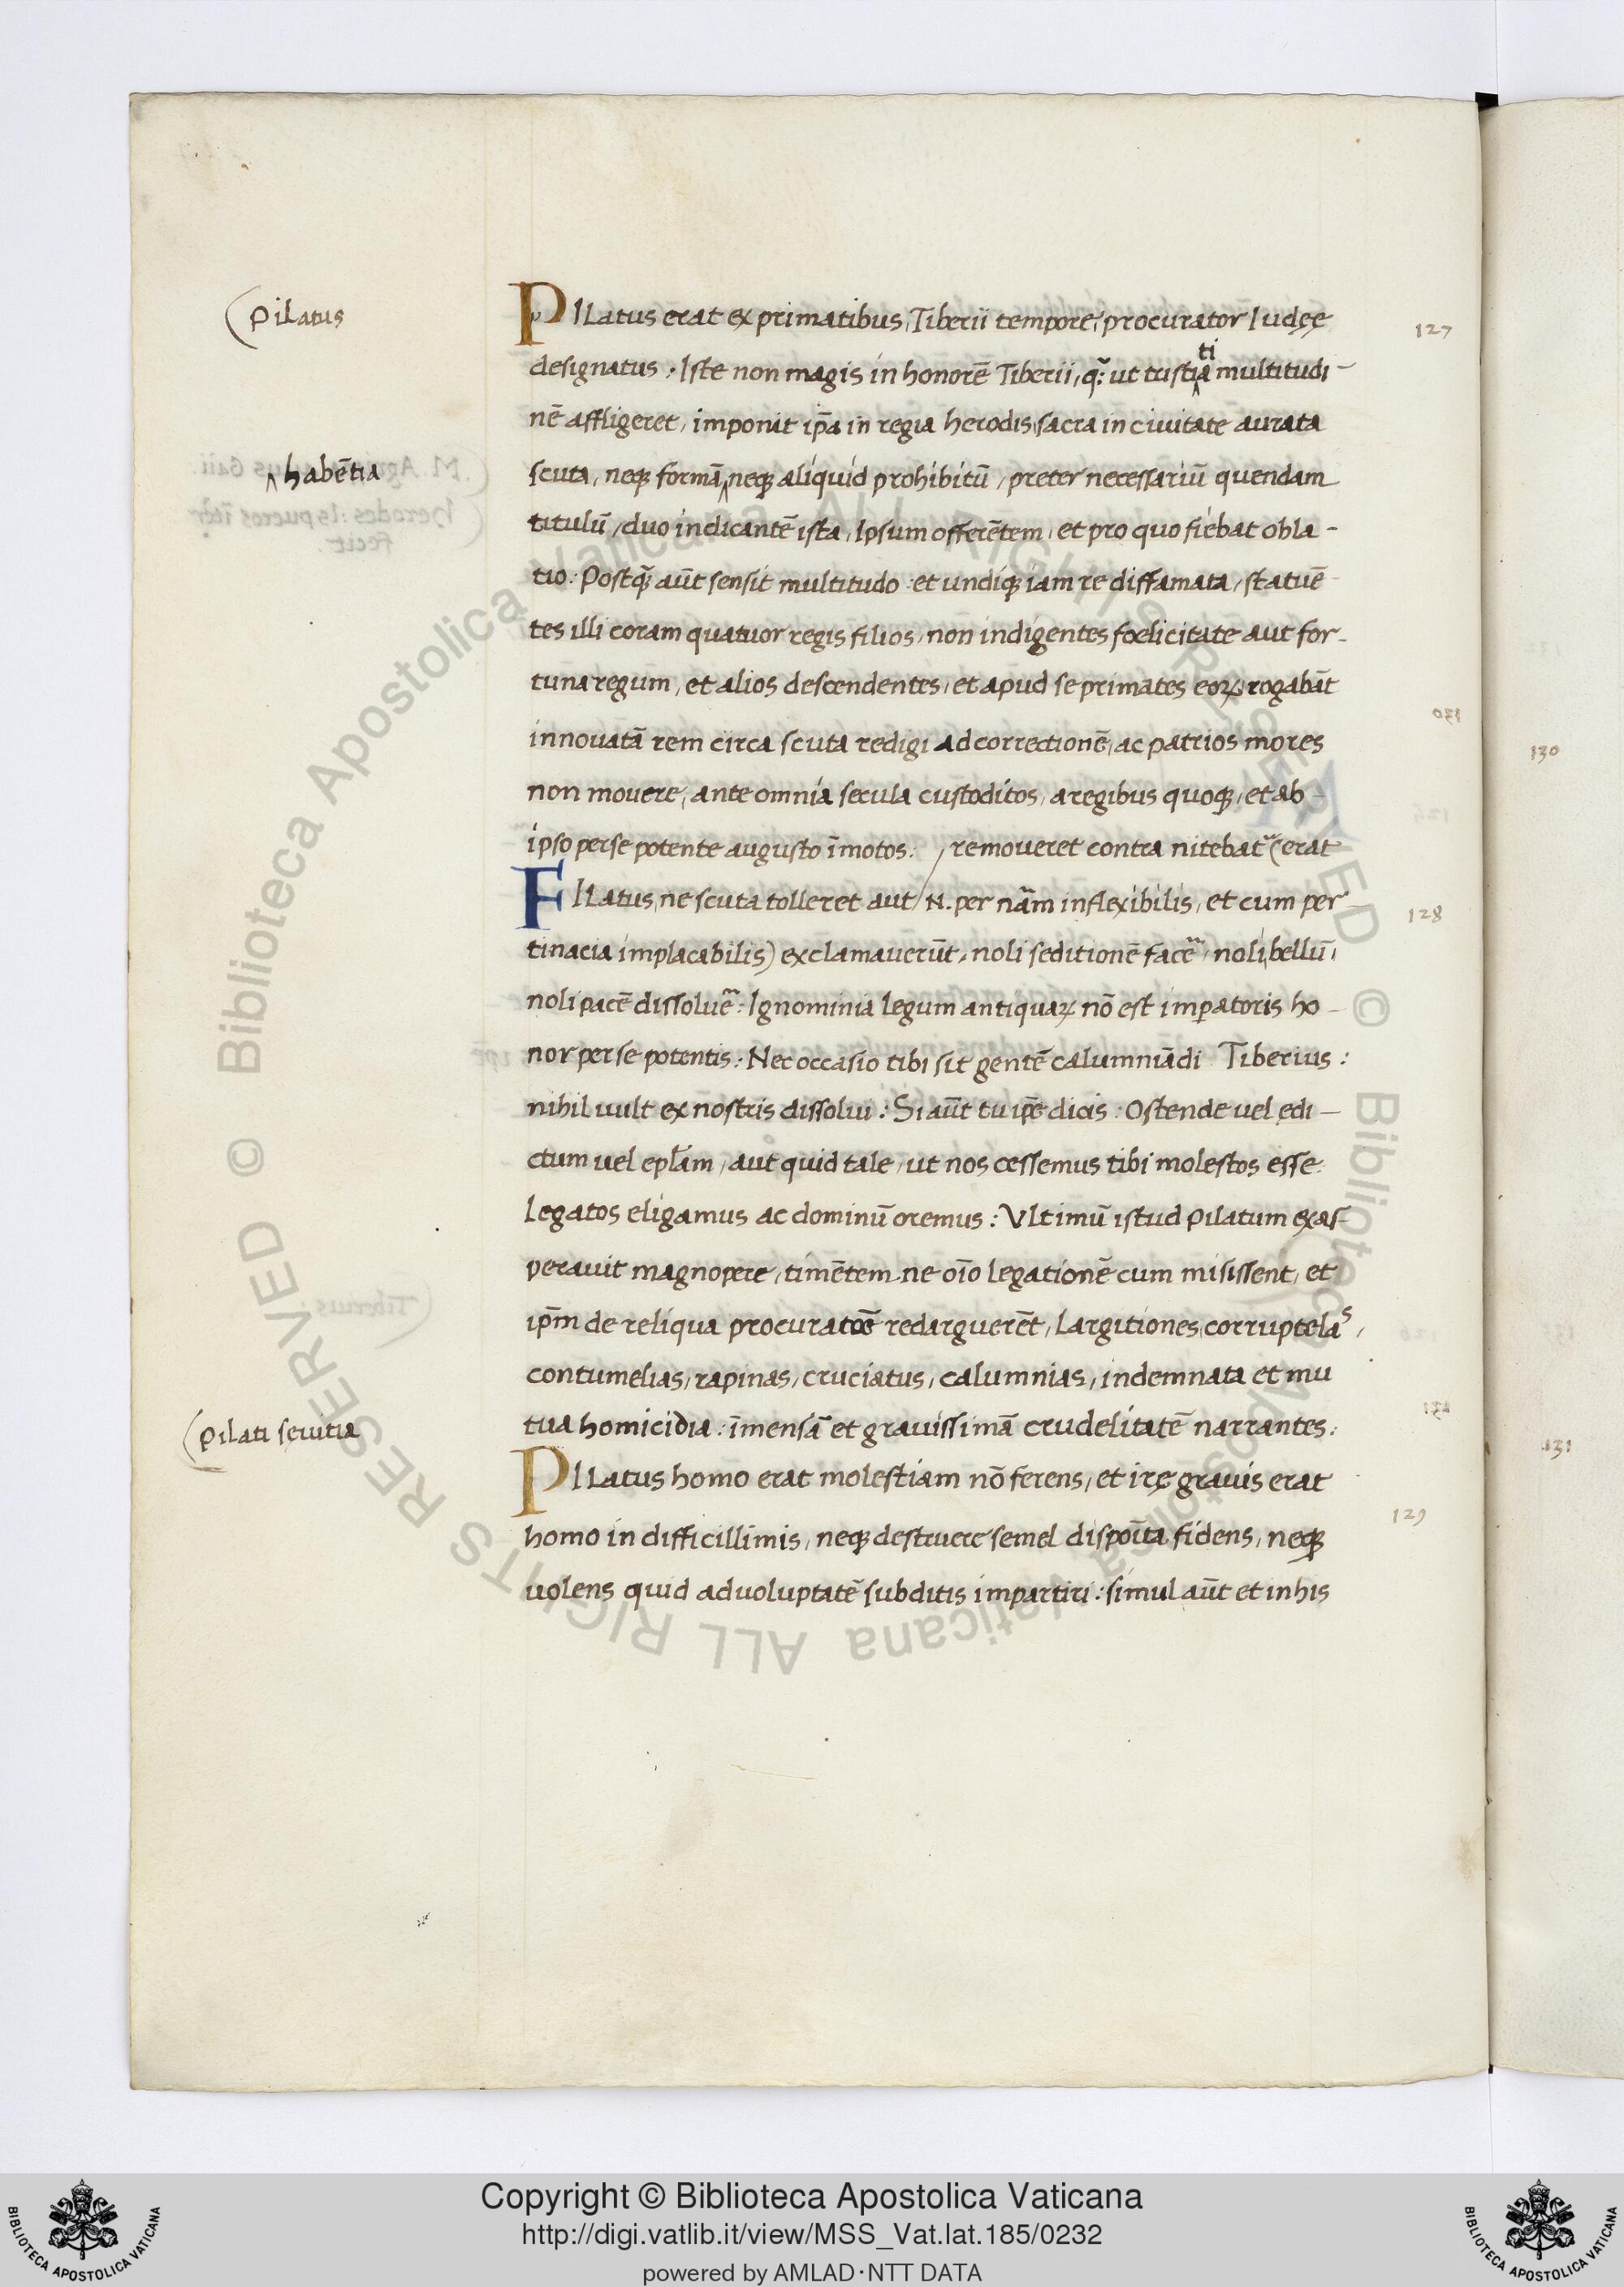 Pilatus
PILatus erat ex primatibus, Tiberii tempore, procurator Iudęę
127
designatus. Iste non magis in honorē Tiberii, q̃; ut tristi^ti^a multitudi-
nē affligeret, imponit ip̄a in regia herodis, sacra in ciuitate aurata
habētia
scuta, neq; formā neq; aliquid prohibitū, preter necessariū quendam
titulū, duo indicantē ista, Ipsum offerētem, et pro quo fiebat obla-
tio: Postq̃ aūt sensit multitudo: et undiq; iam re diffamata, statuē
tes illi coram quatuor regis filios, non indigentes foelicitate aut for-
tuna regum, et alios descendentes, et apud se primates eoꝝ rogabāt
innouatā rem circa scuta redigi ad correctionē, ac patrios mores
130
non mouere, ante omnia secula custoditos, a regibus quoq;, et ab
ipso per se potente augusto īmotos: remoueret contra nitebat᷑ (erat
FILatus, ne scuta tolleret aut N. per nām inflexibilis, et cum per
128
tinacia implacabilis) exclamauerūt, noli seditionē facē, noli bellū,
noli pacē dissoluē: Ignominia legum antiquaꝝ nō est imperatoris ho-
nor per se potentis: Nec occasio tibi sit gentē calumniādi Tiberius:
nihil uult ex nostris dissolui: Si aūt tu ip̄e dicis: Ostende uel edi-
ctum uel ep̄lam, aut quid tale, ut nos cessemus tibi molestos esse:
Legatos eligamus ac dominū oremus: Vltimū istud Pilatum exas-
perauit magnopere, timētem ne oīo legationē cum misissent, et
ip̄m de reliqua procuratōe redarguerēt, Largitiones, corruptelas,
contumelias, rapinas, cruciatus, calumnias, indemnata et mu
tua homicidia: īmensā et grauissimā crudelitatē narrantes:
Pilati seuitia
131
PILatus homo erat molestiam nō ferens, et irę grauis erat
129
homo in difficillimis, neq; destruere semel dispoīta fidens, neq;
uolens quid ad uoluptatē subditis impartiri: simul aūt et in his
© Biblioteca Apostolica Vaticana ALL RIGHTS RESERVED © Biblioteca Apostolica Vaticana ALL RIGHTS RESERVED
Copyright © Biblioteca Apostolica Vaticana
http://digi.vatlib.it/view/MSS_Vat.lat.185/0232
powered by AMLAD·NTT DATA
BIBLIOTECA APOSTOLICA VATICANA
BIBLIOTECA APOSTOLICA VATICANA